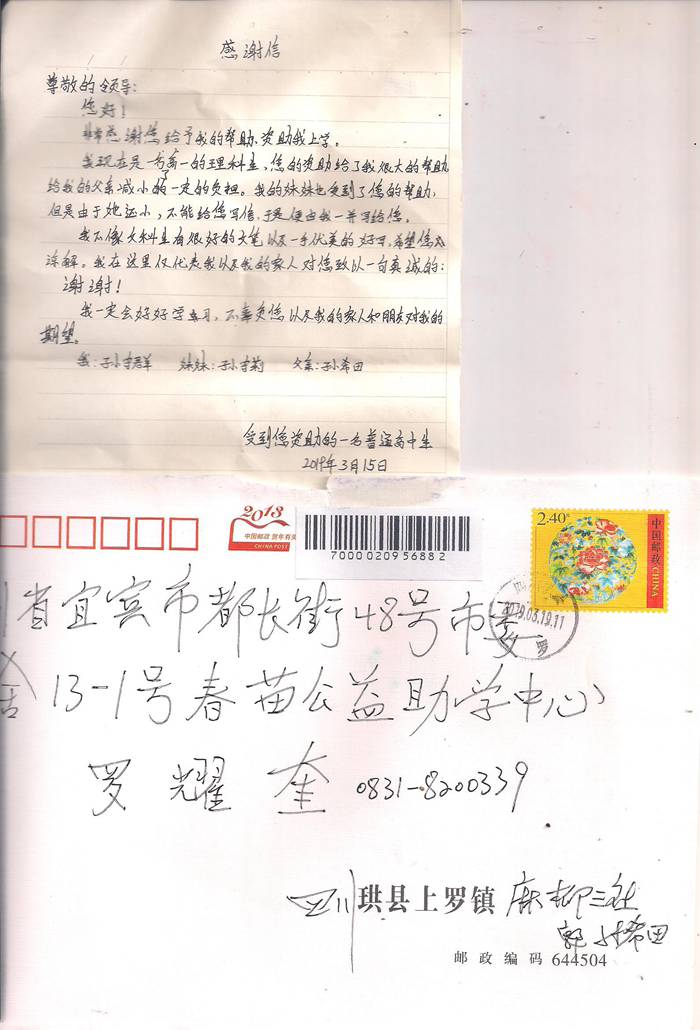 感谢信
尊敬的领导:
您好!
非常感谢您给予我的帮助、资助我上学。
我现在是一名高一的理科生,您的资助给了我很大的帮助
给我的父亲减小的一定的负担。我的妹妹也受到了您的帮助,
但是由于她还小,不能给您写信,于是便由我一并写给您。
我不像文科生有很好的文笔以及一手优美的好字,希望您, 
谅解。我在这里仅代表我以及我的家人对您致以一句真诚的:
谢谢!
我一定会好好学习,不辜负您以及我的家人和朋友对我的
期望。
我:孙 妹妹:孙 父亲:孙希田
受到您资助的一名普通高中生
2019年3月15日
2013
中国邮政 贺年有奖
CHINA POST
7000020956882
2.40元
中国邮政 CHINA
2019.03.19.11
罗
省宜宾市都长街48号市委
舍13-1号春苗公益助学中心
罗耀奎 0831-8200339
四川珙县上罗镇麻柳三社
孙希田
邮政编码 644504